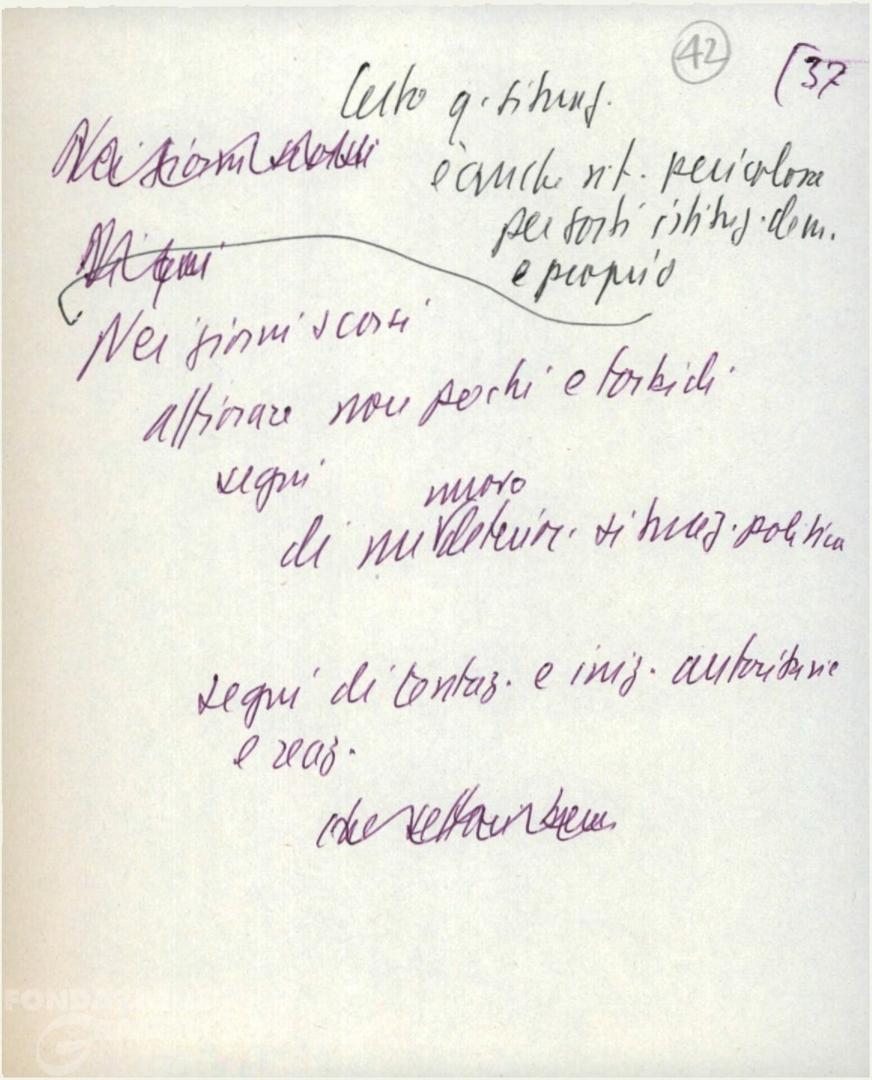 42
[37
Certo q. situaz.
è anche sit. pericolosa
per sorti istituz. dem.
e proprio
Nei giorni scorsi
Nei giorni scorsi
affiorare non pochi e torbidi
segni
nuovo
di un deterior. situaz. politica
segni di tentaz. e iniz. autoritarie
e reaz.
che
FONDAZIONE